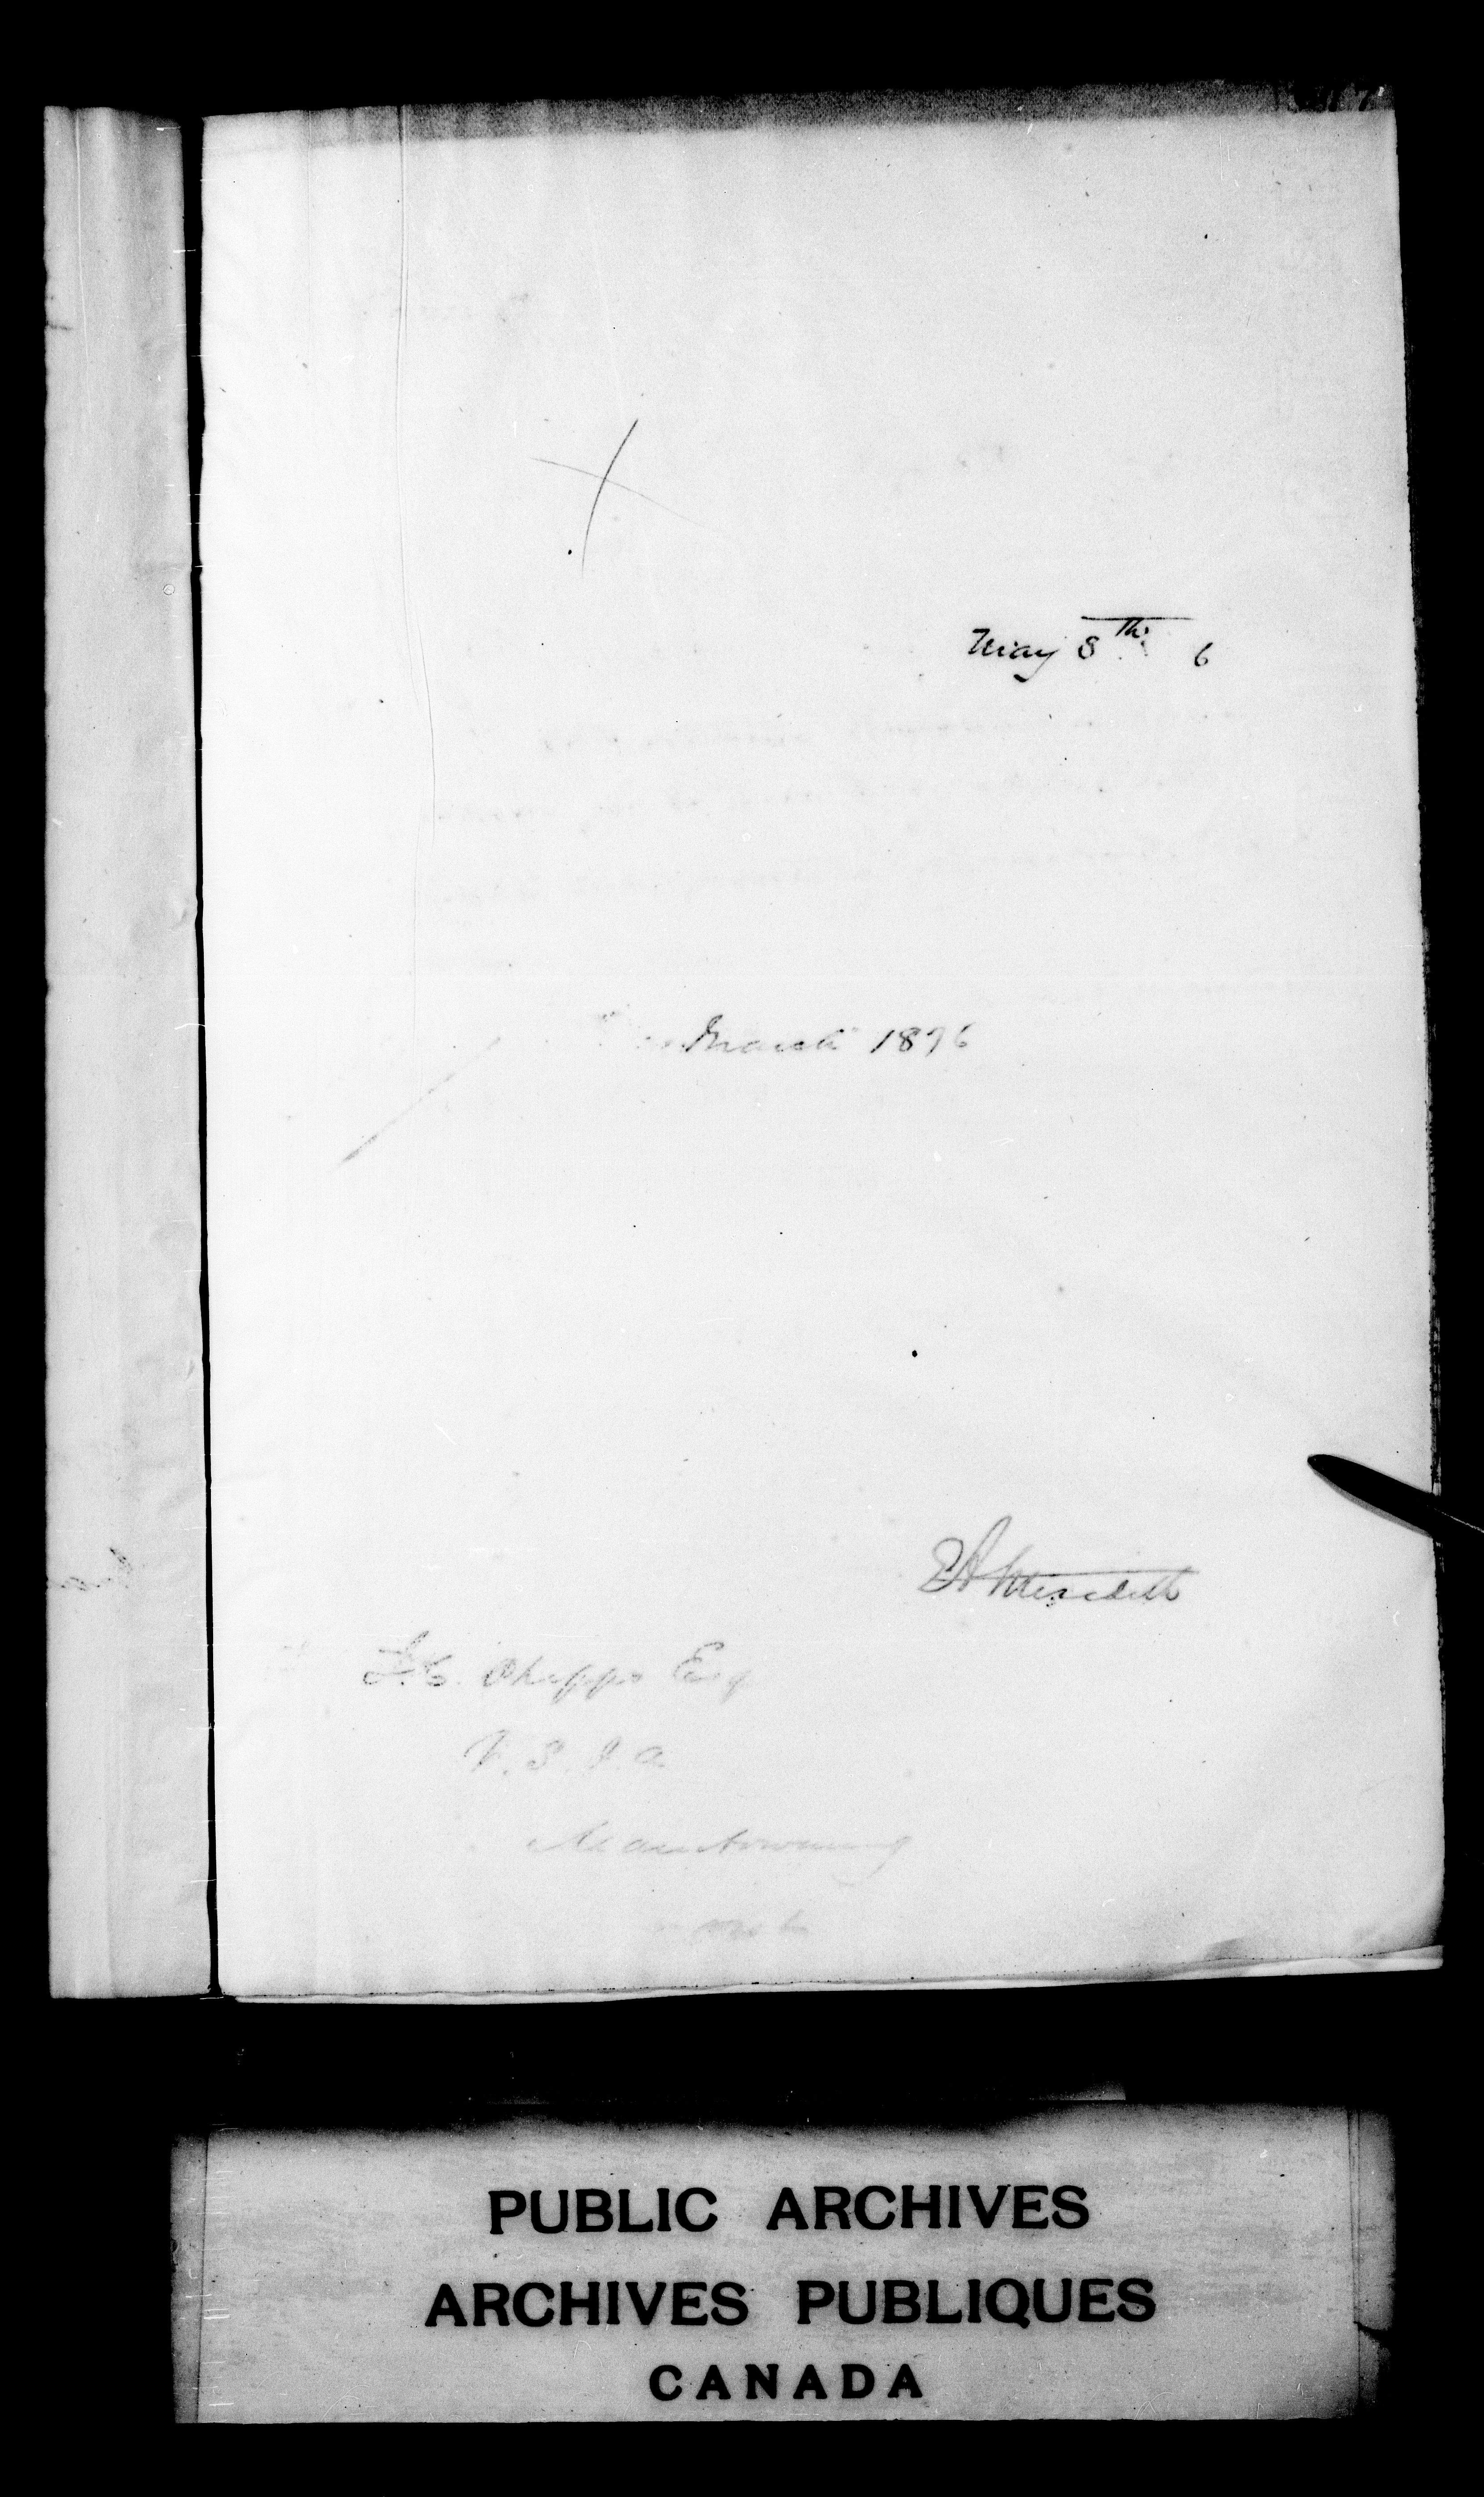 May 8th 6
March 1876
EA Meredith
J.C. Phipps Esq
V.S.I.A
Manitowaning
Ont
PUBLIC ARCHIVES
ARCHIVES PUBLIQUES
CANADA